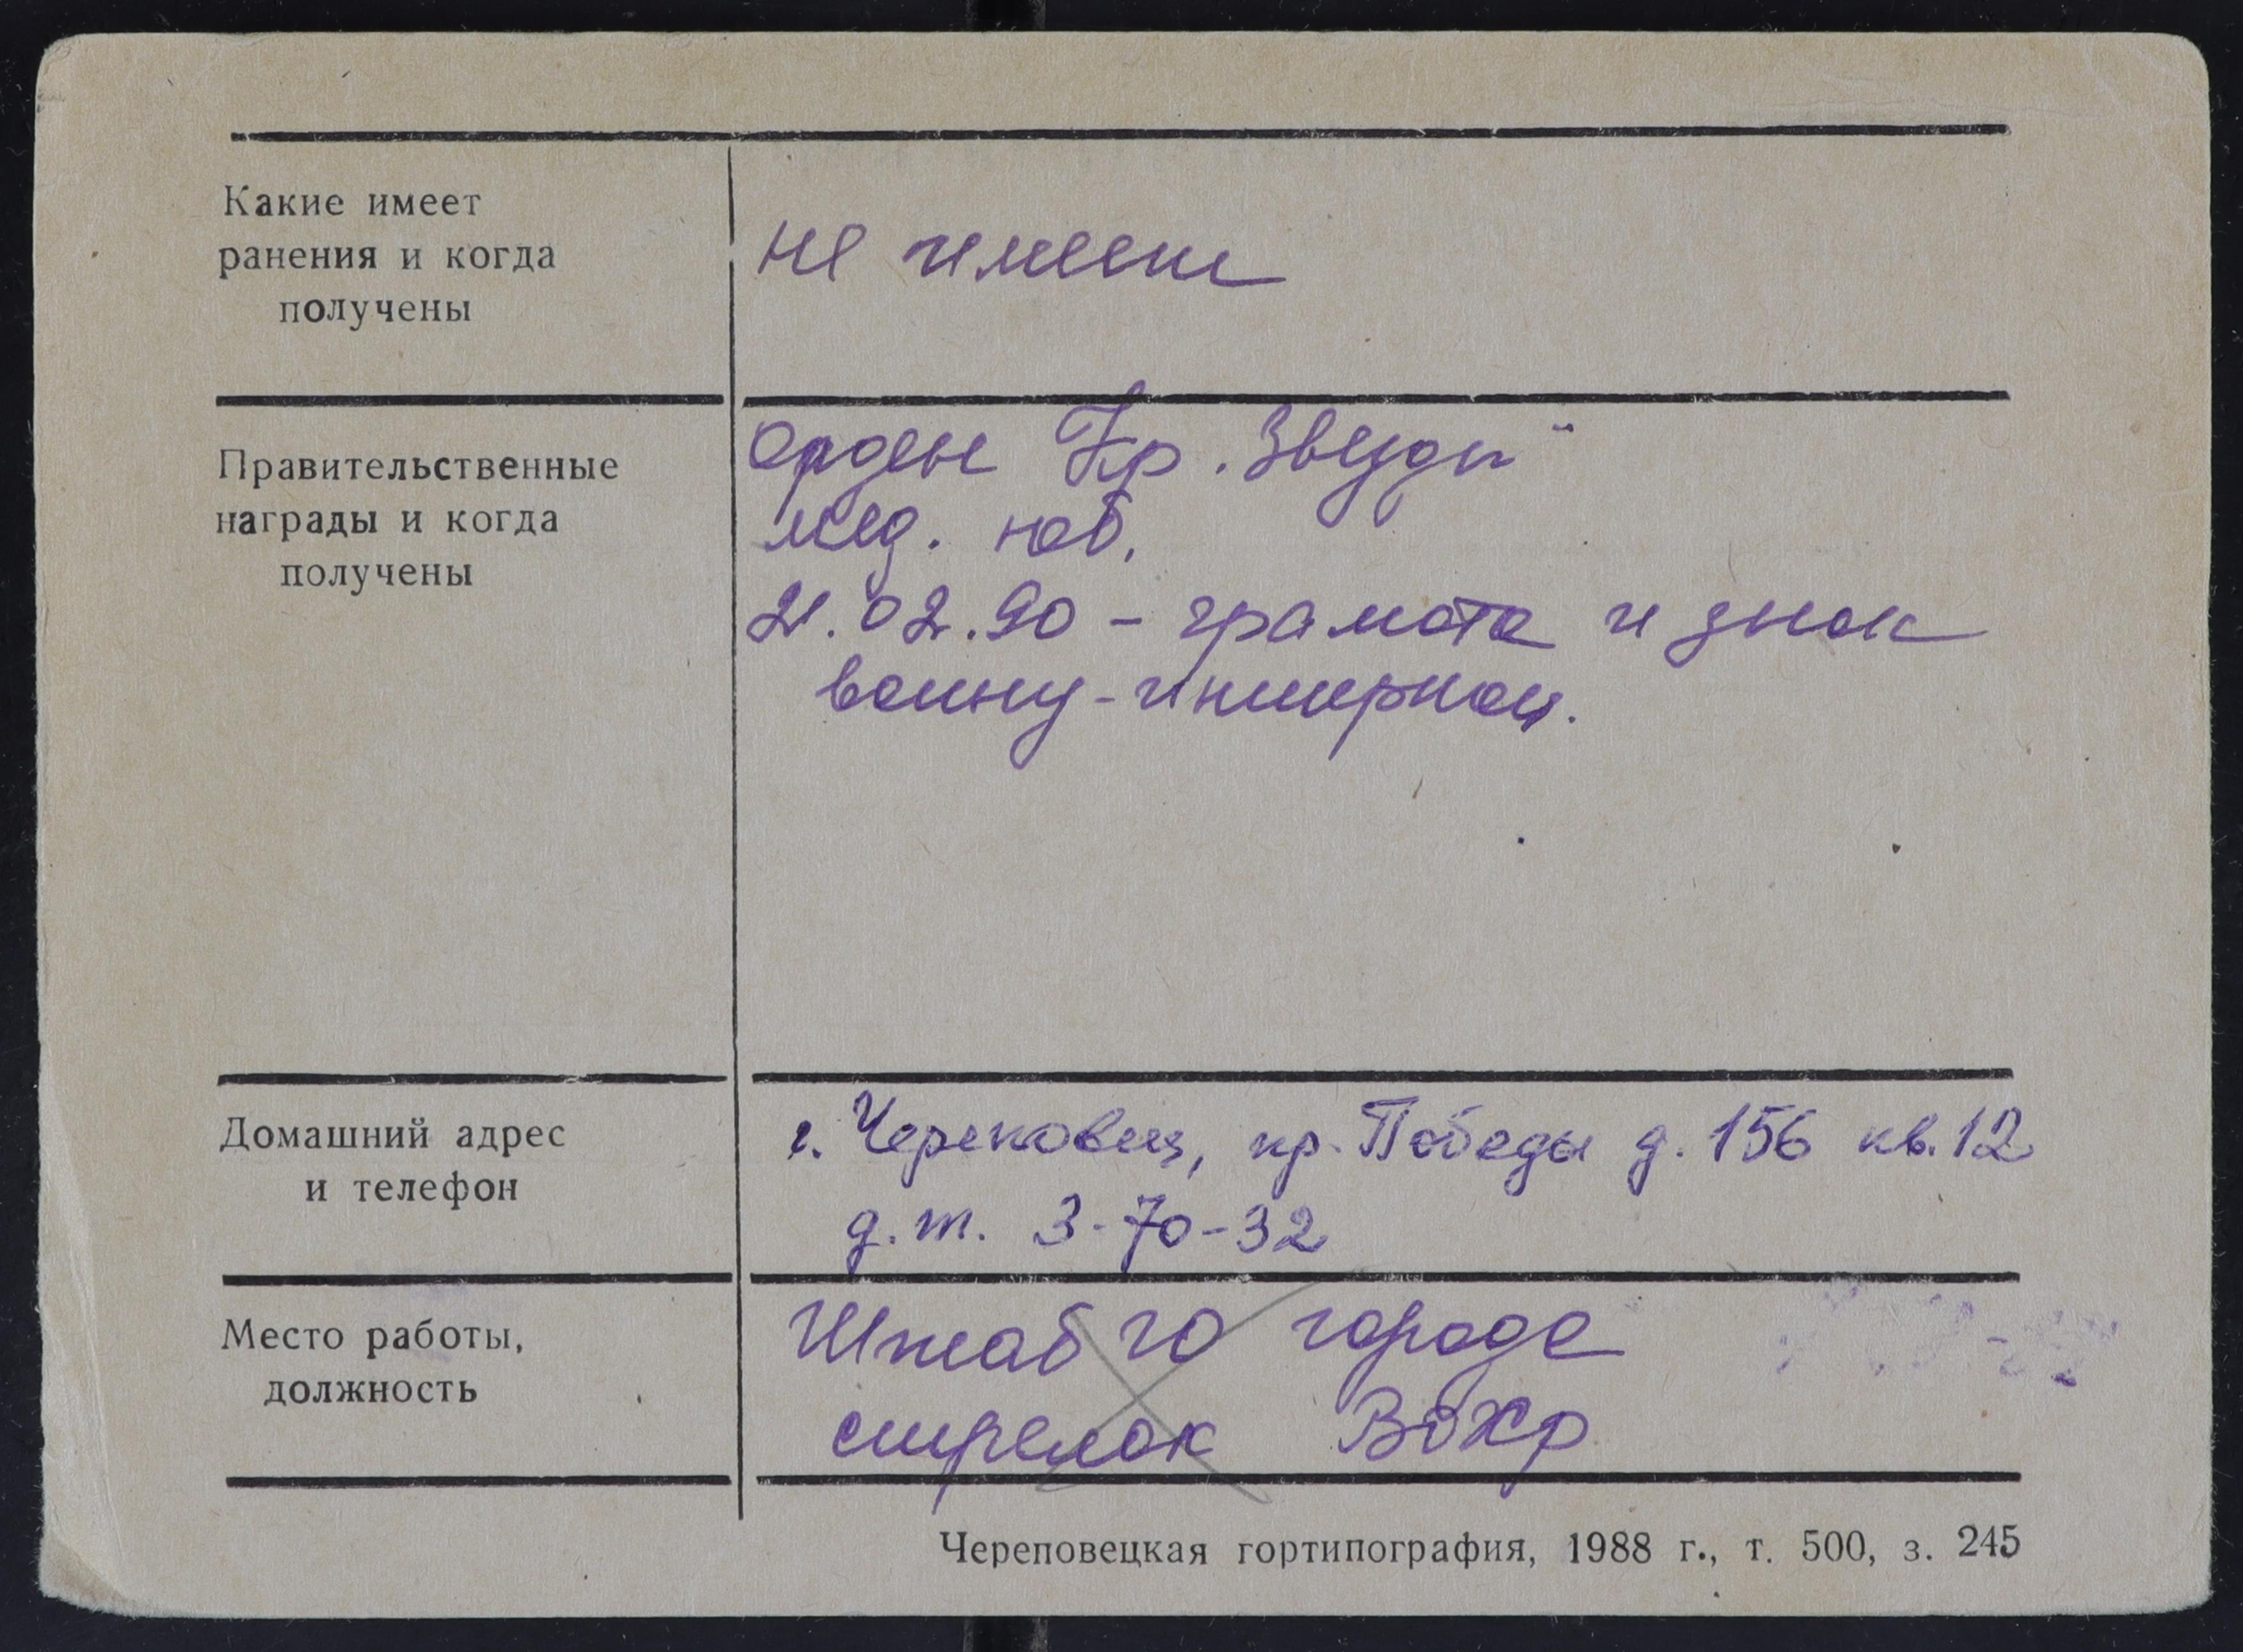 Какие имеет
ранения и когда
получены
не имеет
Правительственные
награды и когда
получены
Орден Кр. Звезды"
мед. юб.
21.02.90 - грамота и знак
воину-интернац.
Домашний адрес
и телефон
г. Череповец, пр. Победы д. 156 кв. 12
д.т. 3-70-32
Место работы,
должность
Штаб ГО города
стрелок ВОХР
Череповецкая гортипография, 1988 г., т. 500, з. 245